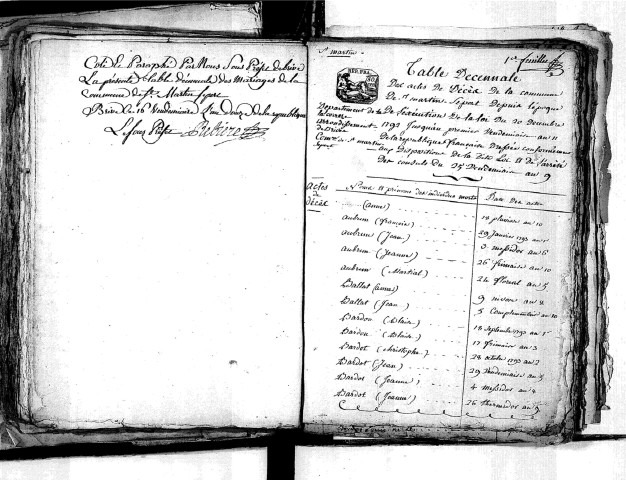 Coté et Paraphé Par Nous Sous Préfet de brive
La présente table décennale des Mariages de la
commune de St Martin Sepert
Brive le 16 Vendemiaire L'an Douze de la republique
Le Sous Préfet
St martin
1er feuillet
REP. FRA.
Table Decennale
Des actes de Décès de la commune
De St martin Sepert Depuis L'epoque
Departement de la Corrèze
De l'exécution de la Loi du 20 Decembre
arrondissement de Brive
1792 Jusqu'au premier Vendemiaire an 11
De la republique française Dressée conformement
Comne de St martin Sepert
aux Dispositions de la Loi et de l'arrêté
Des consuls du 25 Vendemiaire an 9
actes de décès
Noms et prénoms des individus morts
Date des actes
(anne) 18 pluviose an 10
aubrun (françois) 29 Janvier 1793 an 1er
aubrun (Jean) 3 messidor an 6
aubrun (Jeanne) 26 frimaire an 10
aubrun (Martial) 24 floreal an 5
Ballat (anne) 9 nivose an 4
Ballat (Jean) 5 Complementaire an 10
Bardou (Blaise) 18 Septembre 1793 an 1er
Bardou (Blaise) 17 frimaire an 3
Bardot (Christophe) 28 octobre 1793 an 2
Bardot (Jean) 29 Vendemiaire an 5
Bardot (Jeanne) 4 Messidor an 4
Bardot (Jeanne) 26 thermidor an 9